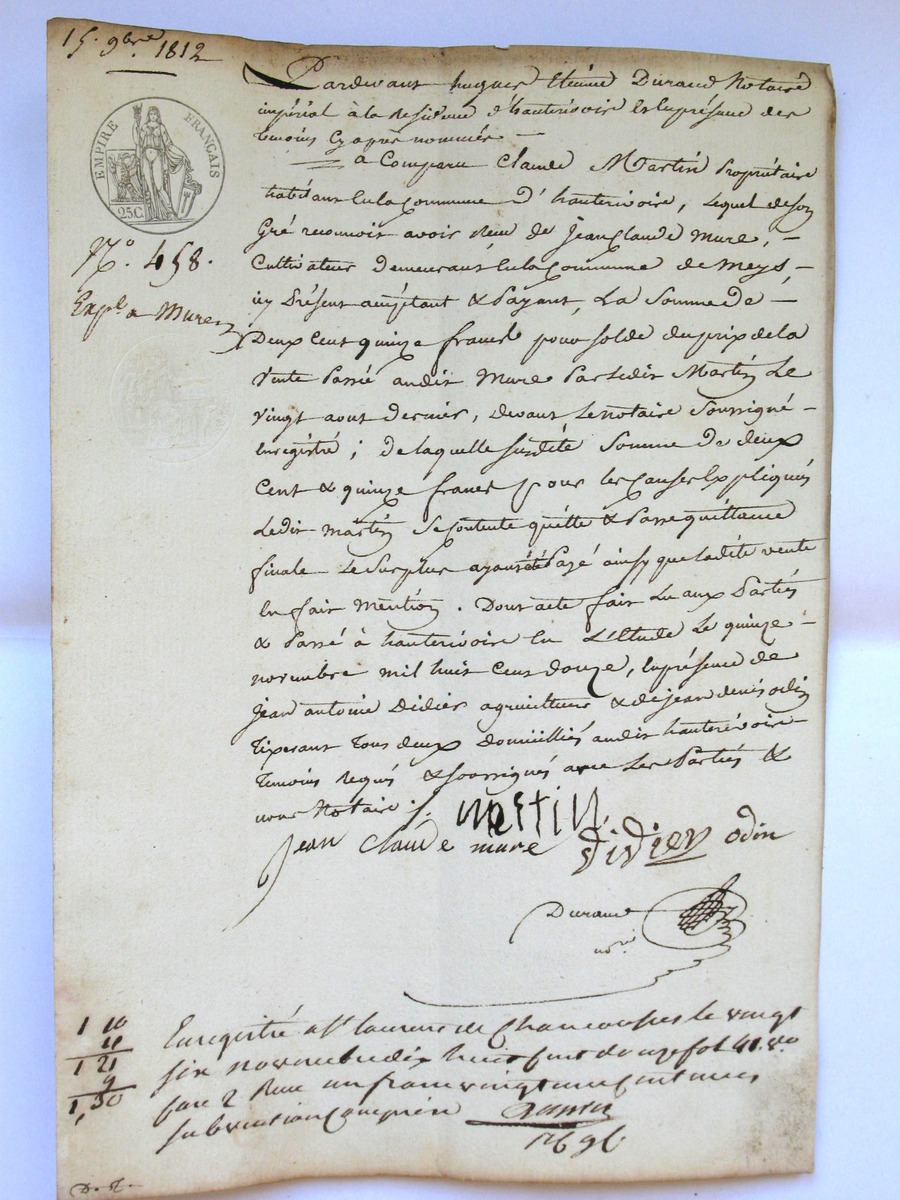 15. 9bre 1812
EMPIRE FRANÇAIS
25C.
N°. 458.
Expé. a Mure
Pardevant hugues Etienne Durand, Notaire
impérial à la Residence d'hauterivoire En la présence des
temoins cy après nommés —
a Comparu Claude Martin Propriétaire
habitant En la Commune d'hauterivoire, Lequel de son
Gré reconnoit avoir Recu de Jean Claude Mure, —
Cultivateur Demeurant En la Commune de Meys, —
icy Présent acceptant & Payant, La Somme de —
Deux Cent quinze francs pour solde du prix de la
Vente Passé audit Mure Par Ledit Martin Le
vingt aout dernier, devant Le notaire Soussigné —
Enregistré ; de laquelle susdite Somme de deux
Cent & quinze francs pour les causes Expliqués
Ledit martin Se contente quitte & Passe quittance
finale Le Surplus ayant été Payé ainsy que ladite vente
En fait Mention. Dont acte fait Lu aux Parties
& Passé à hauterivoire En L'Etude Le quinze —
novembre mil huit Cent douze, En présence de
Jean antoine Didier agriculteur & de jean denis odin
Tixerant Tous deux Domiciliés audit hauterivoire
Temoins Requis & soussignés avec Les Parties &
nous Notaire ./.
martin
Jean Claude mure didier odin
Durand
nore
1 10
11
1 21
9
1,30
Enregistré a St laurent de Chamousset le vingt
six novembre dix huit cent douze fol 41. Vo
case 2 Recu un franc vingt un centimes
subvention Comprise